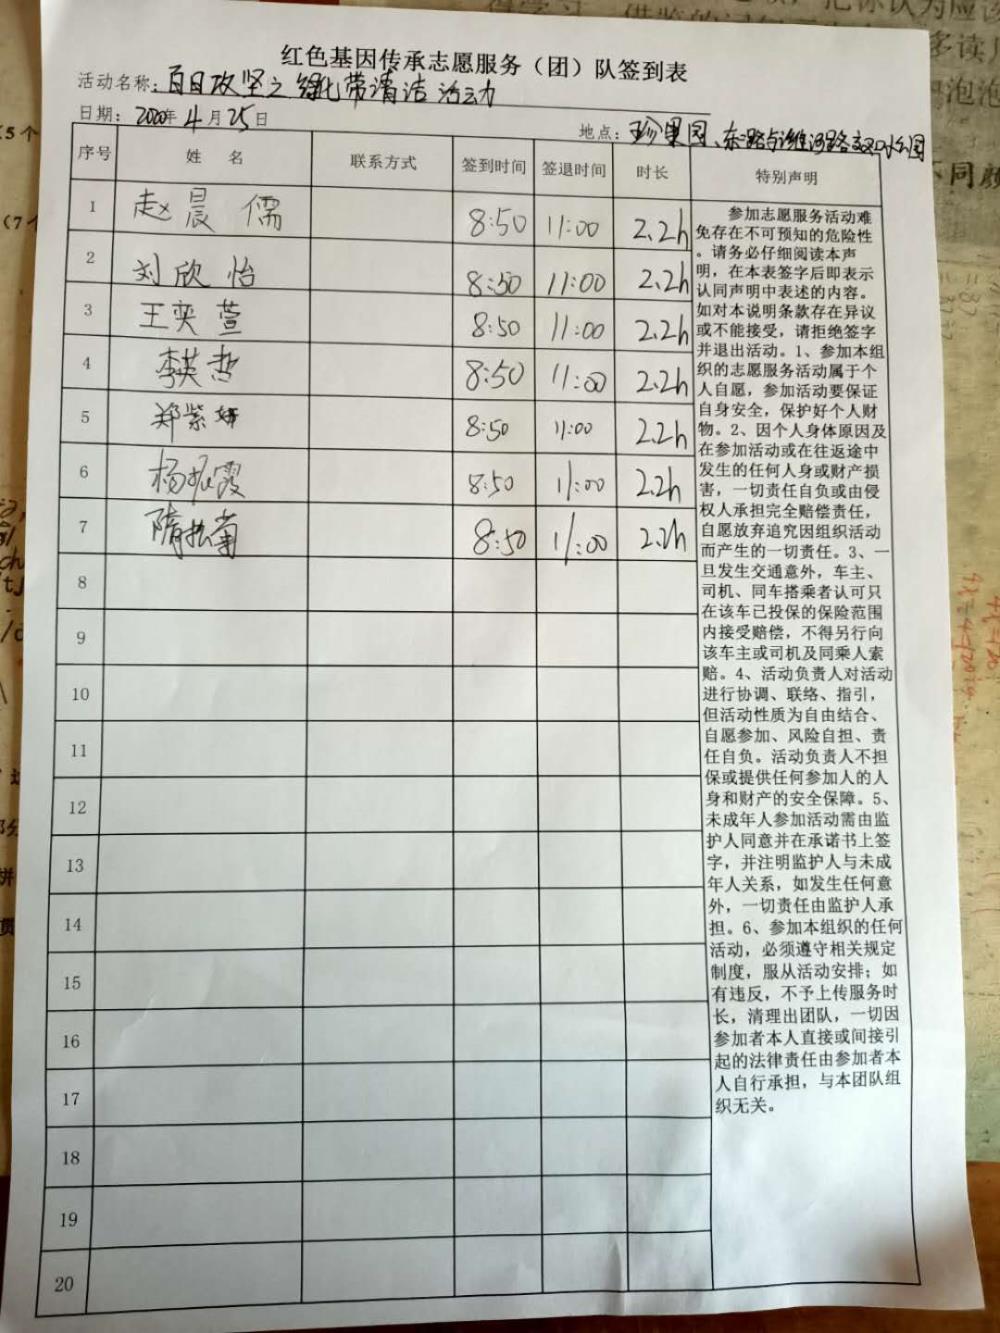 红色基因传承志愿服务（团）队签到表
活动名称：百日攻坚之绿化带清洁活动
日期：2020年4月25日
地点：珍果园、东二路与潍河路交叉口公园
序号 姓 名 联系方式 签到时间 签退时间 时长 特别声明
1 赵晨儒 8:50 11:00 2.2h
2 刘欣怡 8:50 11:00 2.2h
3 王奕萱 8:50 11:00 2.2h
4 李英哲 8:50 11:00 2.2h
5 郑紫妍 8:50 11:00 2.2h
6 杨振霞 8:50 11:00 2.2h
7 隋松菊 8:50 11:00 2.2h
8
9
10
11
12
13
14
15
16
17
18
19
20
参加志愿服务活动难
免存在不可预知的危险性
。请务必仔细阅读本声
明，在本表签字后即表示
认同声明中表述的内容。
如对本说明条款存在异议
或不能接受，请拒绝签字
并退出活动。1、参加本组
织的志愿服务活动属于个
人自愿，参加活动要保证
自身安全，保护好个人财
物。2、因个人身体原因及
在参加活动或在往返途中
发生的任何人身或财产损
害，一切责任自负或由侵
权人承担完全赔偿责任，
自愿放弃追究因组织活动
而产生的一切责任。3、一
旦发生交通意外，车主、
司机、同车搭乘者认可只
在该车已投保的保险范围
内接受赔偿，不得另行向
该车主或司机及同乘人索
赔。4、活动负责人对活动
进行协调、联络、指引，
但活动性质为自由结合、
自愿参加、风险自担、责
任自负。活动负责人不担
保或提供任何参加人的人
身和财产的安全保障。5、
未成年人参加活动需由监
护人同意并在承诺书上签
字，并注明监护人与未成
年人关系，如发生任何意
外，一切责任由监护人承
担。6、参加本组织的任何
活动，必须遵守相关规定
制度，服从活动安排；如
有违反，不予上传服务时
长，清理出团队，一切因
参加者本人直接或间接引
起的法律责任由参加者本
人自行承担，与本团队组
织无关。